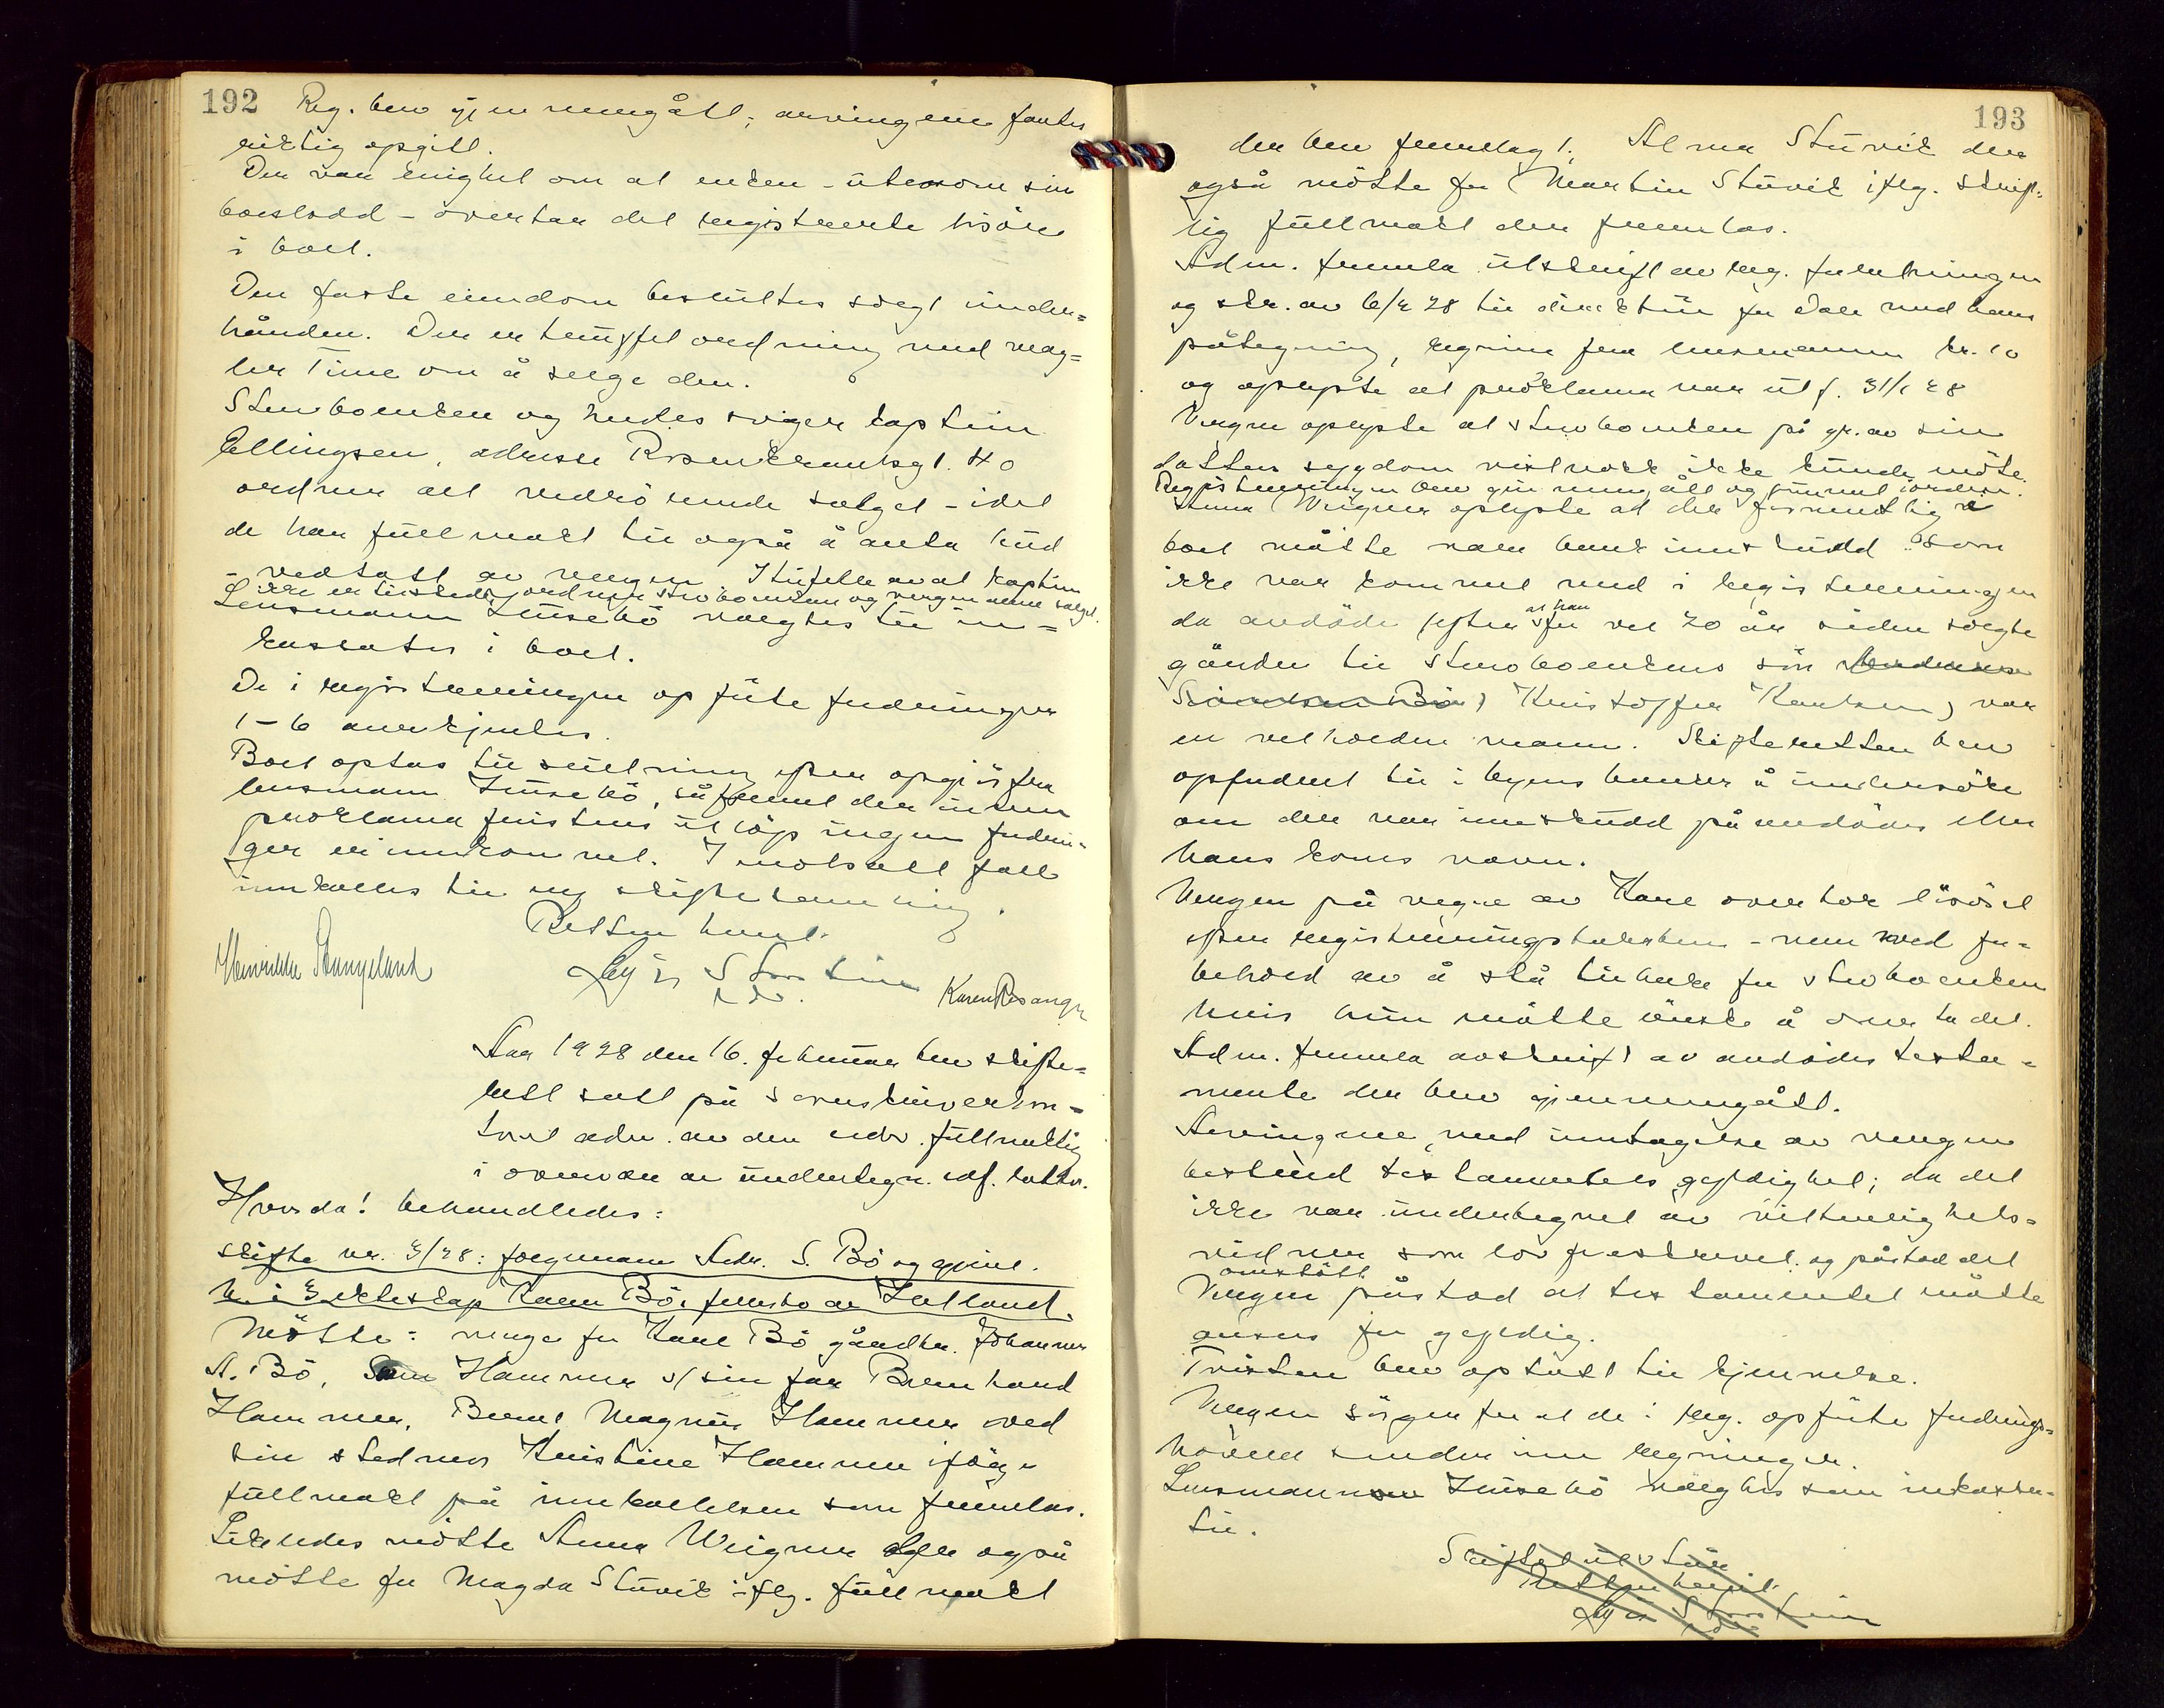 192
Reg. blev gjennemgått; arvingene fantes
riktig opgitt.
Der var enighet om at enken - utenom sin
boeslodd - overtar det registrerte lösöre
i boet.
Den faste eiendom besluttes solgt under=
hånden. Der er truffet ordning med meg=
ler Time om å selge den.
Stervboenken og hendes sviger kaptein
Ellingsen, adresse Rosenkrantzgt. 40
ordner alt vedrörende salget - idet
de har fullmakt til også å anta bud
- vedtatt av vergen. I tilfelle av at kaptein
ikke er tilstede, ordner stervboenken og vergen alene salget.
Lensmann Husebö valgtes til in=
kassator i boet.
De i registreringen opförte fordringer
1-6 anerkjentes.
Boet optas til slutning efter opgjör fra
lensmann Husebö, såfremt der innen
proklama fristens utlöp ingen fordrin=
ger er innkommet. I motsatt fall
innkalles til ny skiftesamling.
Retten hevet.
Henrikke Stangeland
Karen Risanger
Aar 1928 den 16. februar blev skifte=
rett satt på sorenskriverkon=
toret adm. av den edsv. fullmektig
i overvær av undertegn. rettsv.
Hvorda! behandledes:
skifte nr. 3/28: forgumann Adr. S. Bö og gjenl.
h. i Ekteskap Karen Bö, fraskilt av Hetland.
Mötte: verge for Kare Bö gårdbr. Johannes
A. Bö, Hammer v/ sin far Bernhard
Hammer, Bernt Magnus Hammer ved
sin stedmor Kristine Hammer ifölge
fullmakt på innkallelsen som fremlas.
Likeledes mötte Anna Weigner der også
mötte for Magda Stuvik iflg. fullmakt
193
der blev fremlagt; Alma Stuvik der
også mötte for Martin Stuvik iflg. skrift=
lig fullmakt der fremlas.
Adm. fremla utskrift av reg. forretningen
og skr. av 6/2 28 til direktör for Dale med hans
påtegning, regning fra lensmannen kr. 10
og oplyste at proklama var utf. 31/1 28
Vergen oplyste at stervboenken på gr. av sin
datters sygdom vistnok ikke kunde möte.
Registreringen blev gjennemgått og funnet iorden.
Anna Weigner oplyste at der formentlig i
boet måtte være bankinnskudd som
ikke var kommet med i registreringen
da avdöde (efter at han for vel 20 år siden solgte
gården til stervboenkens sön
Kristoffer Karlsen) var
en velholden mann. Skifteretten blev
opfordret til i byens banker å undersöke
om der var innskudd på avdödes eller
hans kones navn.
Vergen på vegne av Kare overtok lösöret
efter registreringstaksten - men med for=
behold av å stå tilbake for stervboenken
hvis hun måtte önske å overta det.
Adm. fremla avskrift av avdödes testa=
mente der blev gjennemgått.
Arvingene, med unntagelse av vergen
bestred testamentets gyldighet; da det
ikke var undertegnet av vitterlighets=
vidner som lov foreskrevet og påstod det
omstött
Vergen påstod at testamentet måtte
ansees for gyldig.
Tvisten blev optatt til kjennelse.
Vergen sörger for at de i reg. opförte fordrings=
havere sender inn regninger.
Lensmannen Husebö valgtes som inkassa=
tor.
Skiftet utsatt
Retten hevet.